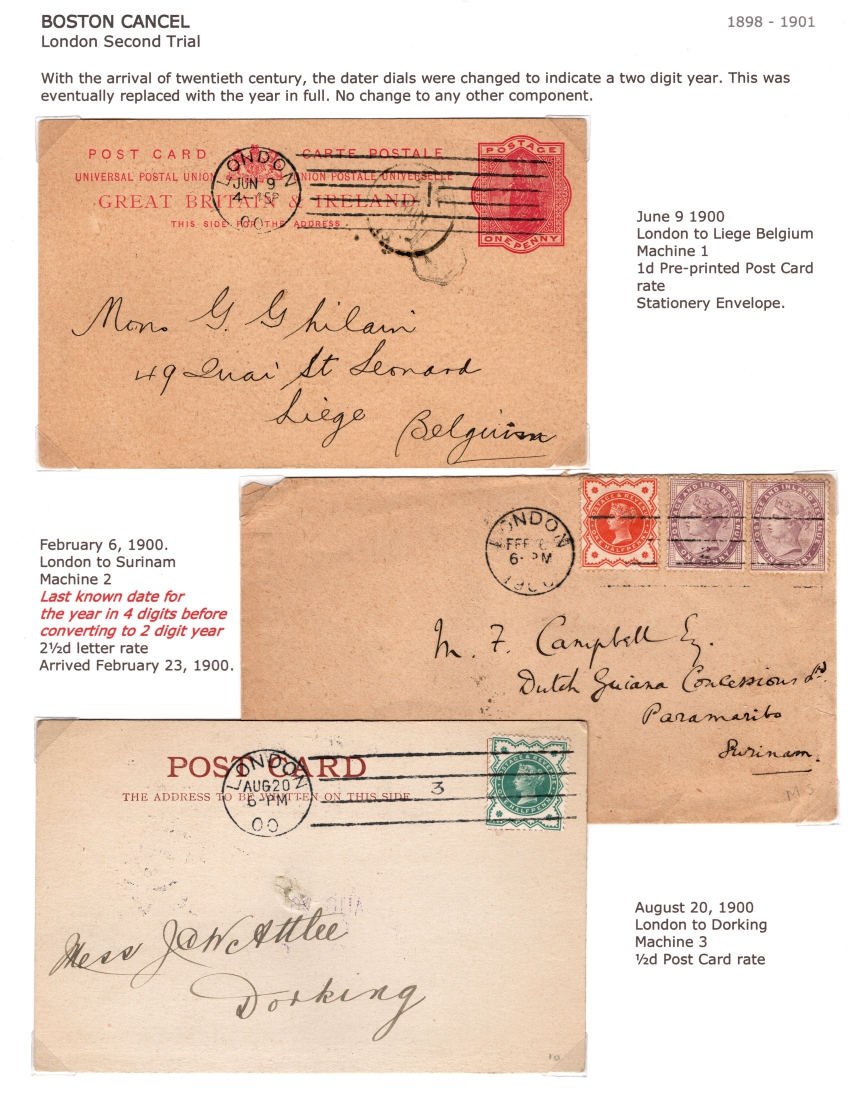 BOSTON CANCEL
1898 - 1901
London Second Trial
With the arrival of twentieth century, the dater dials were changed to indicate a two digit year. This was
eventually replaced with the year in full. No change to any other component.
POST CARD CARTE POSTALE
UNIVERSAL POSTAL UNION UNION POSTALE UNIVERSELLE
GREAT BRITAIN & IRELAND
THIS SIDE FOR THE ADDRESS
LONDON
JUN 9
00
1
POSTAGE
ONE PENNY
Mons G. Ghilain
49 Quai St Leonard
Liége
Belgium
June 9 1900
London to Liege Belgium
Machine 1
1d Pre-printed Post Card
rate
Stationery Envelope.
LONDON
FEB 6
6- PM
1900
POSTAGE & REVENUE
ONE HALFPENNY
POSTAGE AND INLAND REVENUE
ONE PENNY
POSTAGE AND INLAND REVENUE
ONE PENNY
M. F. Campbell Esq.
Dutch Guiana Concessions Ld
Paramaribo
Surinam.
February 6, 1900.
London to Surinam
Machine 2
Last known date for
the year in 4 digits before
converting to 2 digit year
2½d letter rate
Arrived February 23, 1900.
POST CARD
THE ADDRESS TO BE WRITTEN ON THIS SIDE
LONDON
AUG 20
6- PM
00
3
POSTAGE & REVENUE
HALFPENNY
Mess J @ W Attlee
Dorking
August 20, 1900
London to Dorking
Machine 3
½d Post Card rate